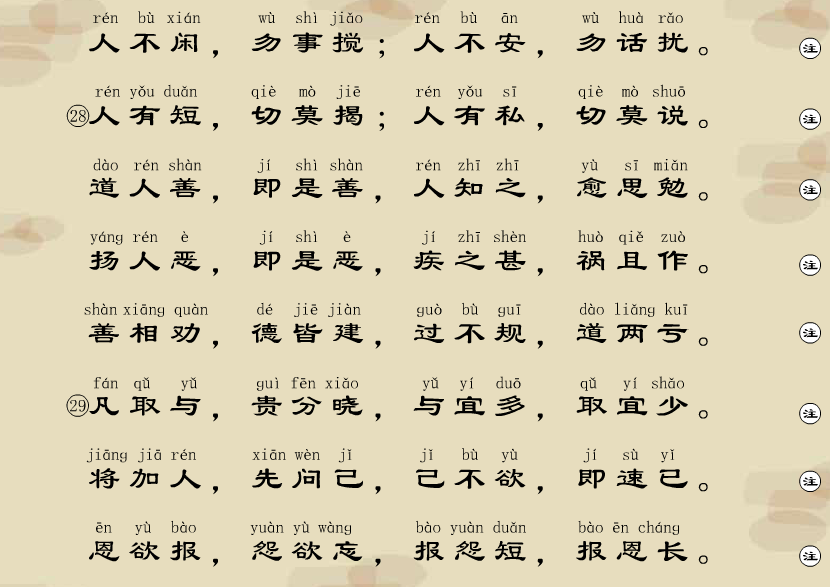 rén bù xián wù shì jiǎo rén bù ān wù huà rǎo
人不闲，勿事搅；人不安，勿话扰。 注
rén yǒu duǎn qiè mò jiē rén yǒu sī qiè mò shuō
28人有短，切莫揭；人有私，切莫说。 注
dào rén shàn jí shì shàn rén zhī zhī yù sī miǎn
道人善，即是善，人知之，愈思勉。 注
yáng rén è jí shì è jí zhī shèn huò qiě zuò
扬人恶，即是恶，疾之甚，祸且作。 注
shàn xiāng quàn dé jiē jiàn guò bù guī dào liǎng kuī
善相劝，德皆建，过不规，道两亏。 注
fán qǔ yǔ guì fēn xiǎo yǔ yí duō qǔ yí shǎo
29凡取与，贵分晓，与宜多，取宜少。 注
jiāng jiā rén xiān wèn jǐ jǐ bù yù jí sù yǐ
将加人，先问己，己不欲，即速已。 注
ēn yù bào yuàn yù wàng bào yuàn duǎn bào ēn cháng
恩欲报，怨欲忘，报怨短，报恩长。 注